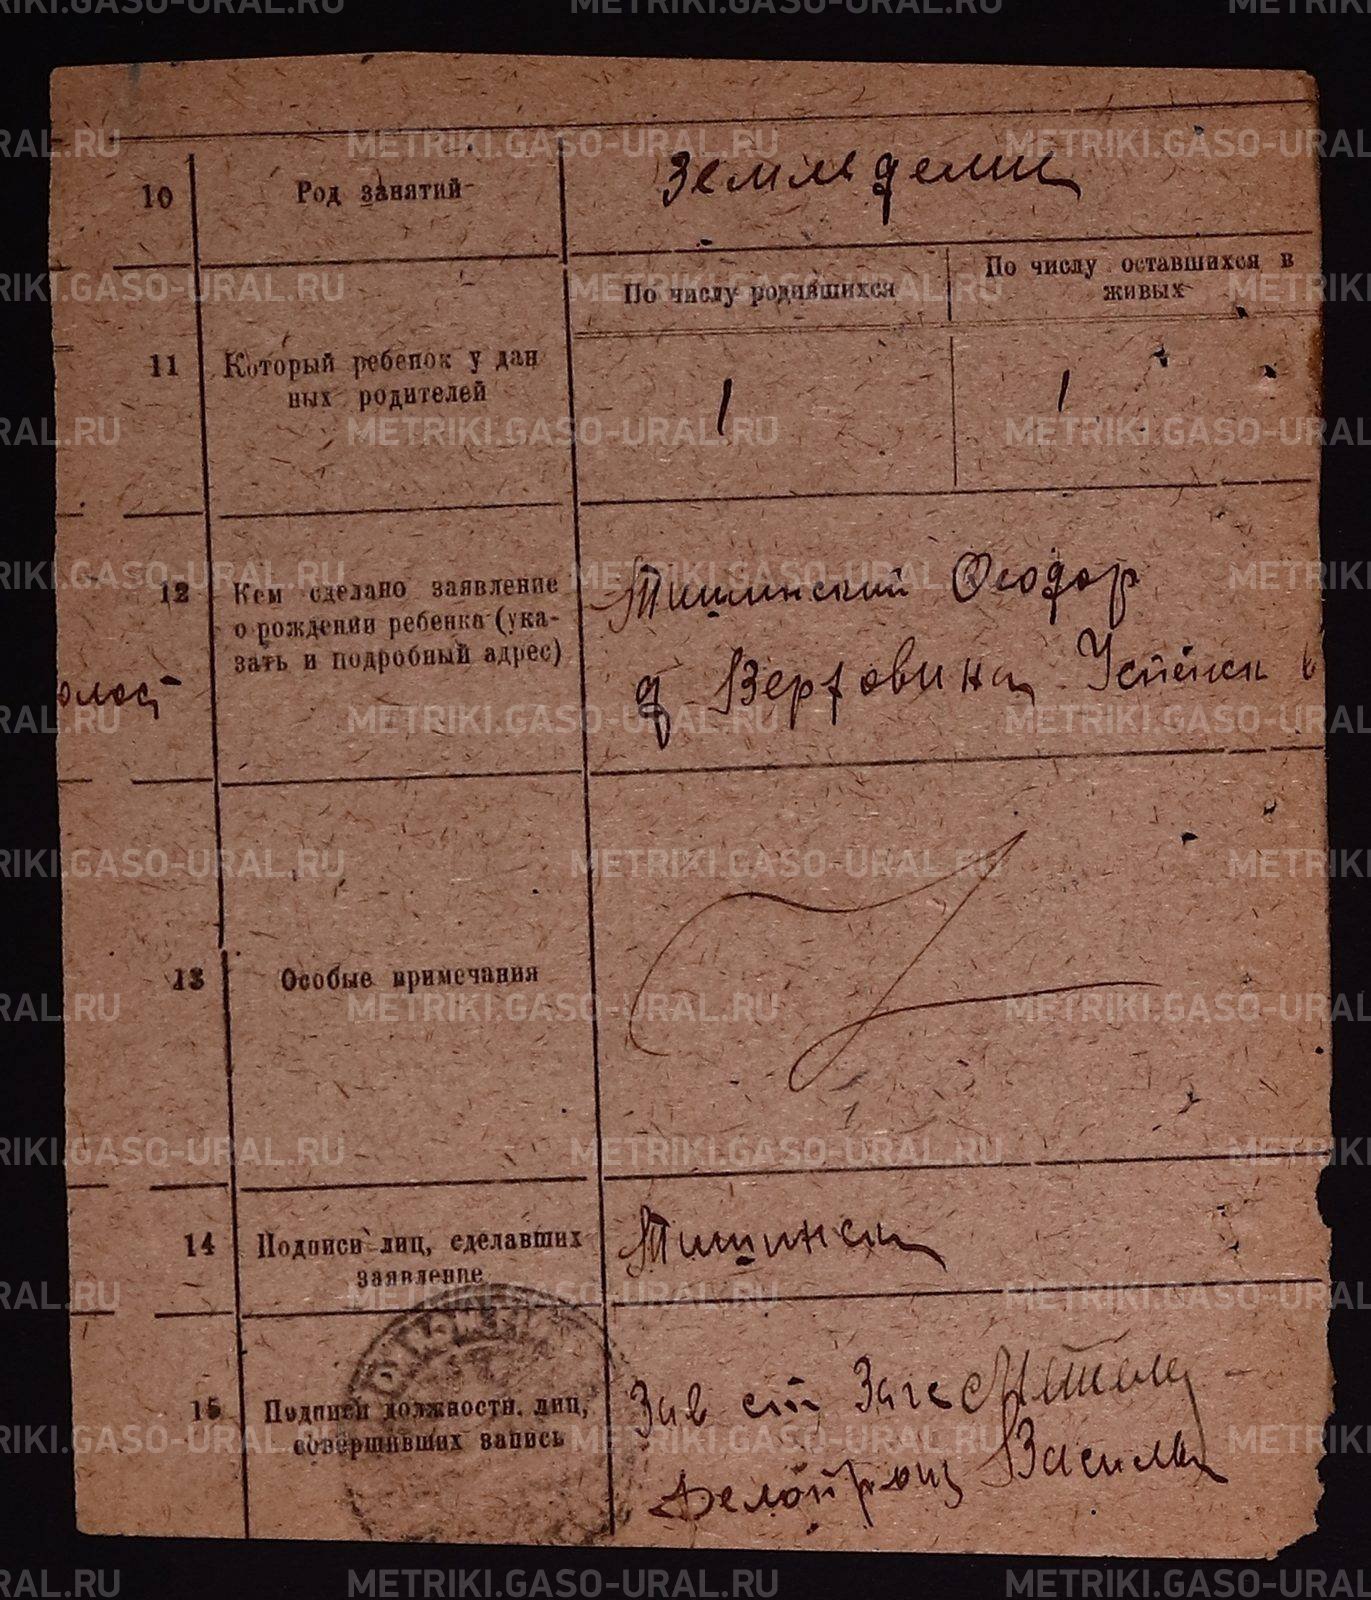 10
Род занятий
Земледелец
11
Который ребенок у дан
ных родителей
По числу родившихся
По числу оставшихся в
живых
1
1
12
Кем сделано заявление
о рождении ребенка (ука-
зать и подробный адрес)
Тишинский Феодор
д Вертовина Успенск в
13
Особые примечания
14
Подписи лиц, сделавших
заявление
Тишински
15
Подписи должностн. лиц,
совершивших запись
Зав
Делопроиз Василье
METRIKI.GASO-URAL.RU